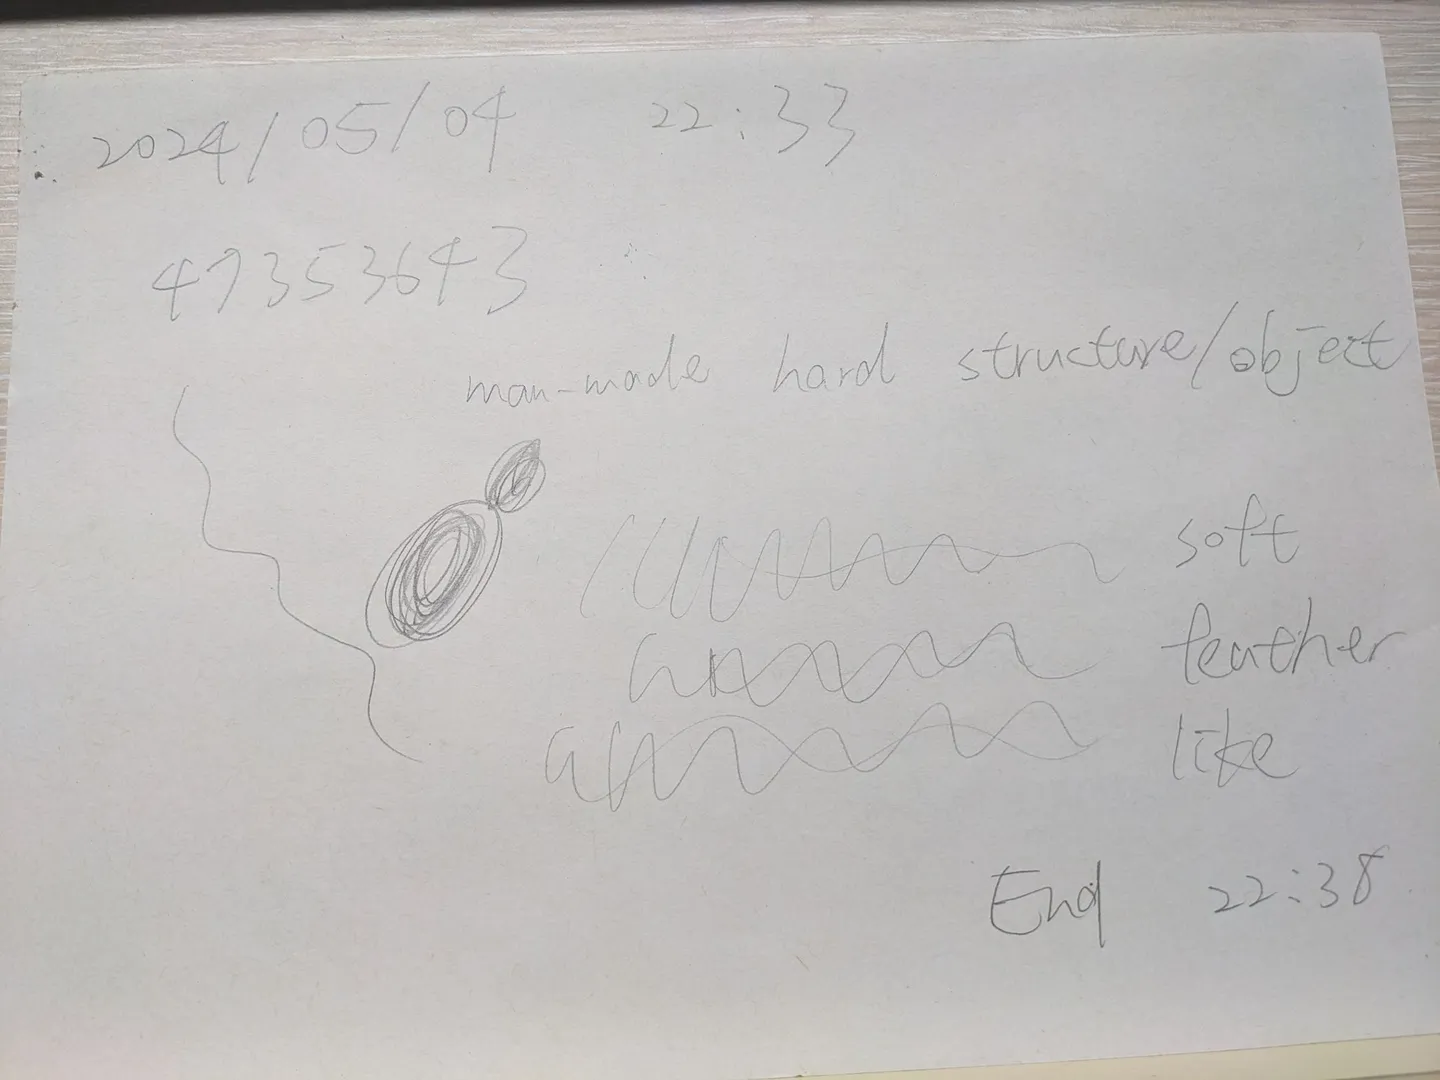 2024/05/04 22:33
47353643
man-made hard structure/object
soft
feather
like
End 22:38